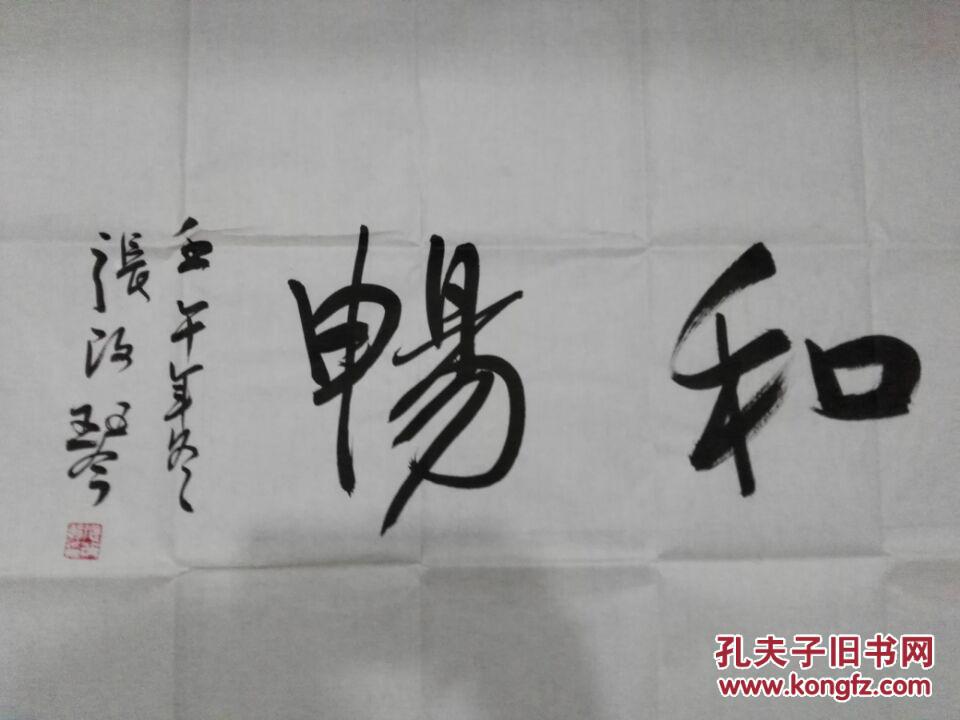 和暢
壬午年冬
張改琴
孔夫子旧书网
www.kongfz.com